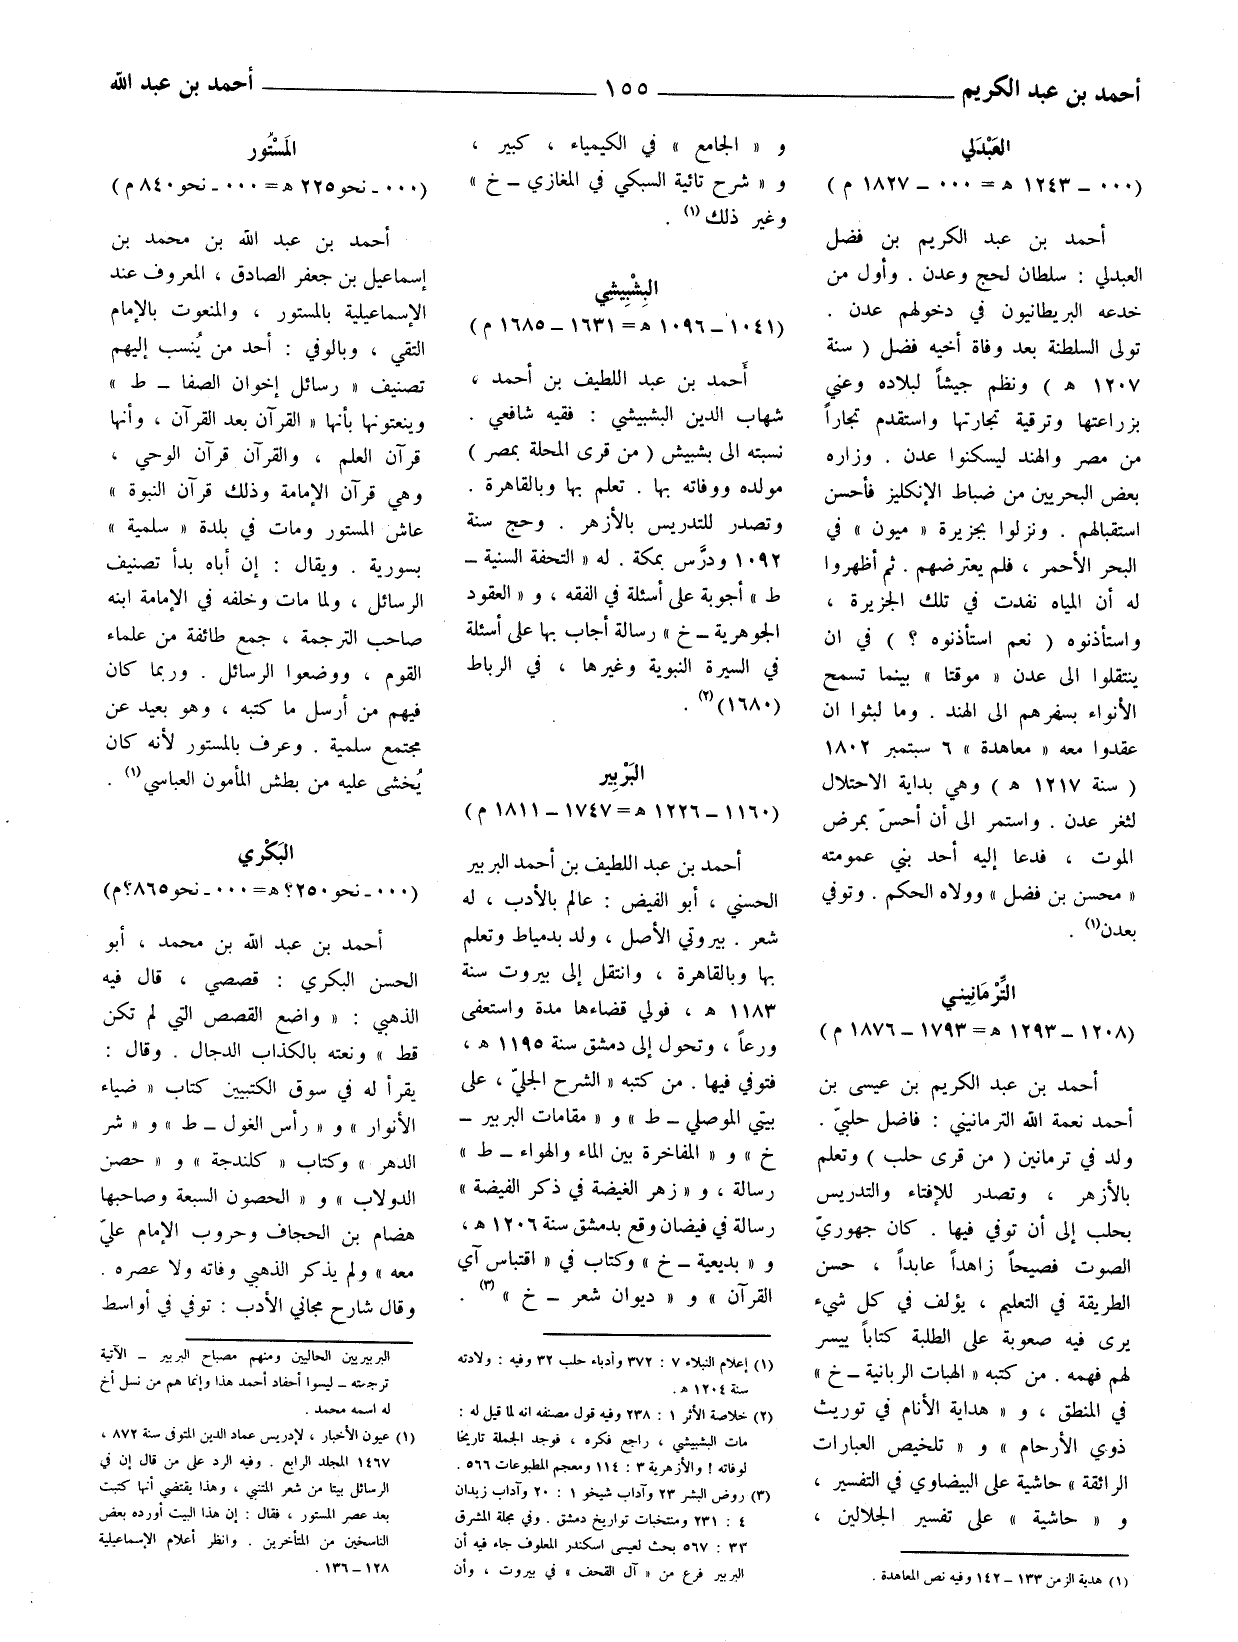 أحمد بن عبد الكريم ــــــ ١٥٥ ــــــ أحمد بن عبد الله
العَبْدَلي
(٠٠٠ ــ ١٢٤٣ ه = ٠٠٠ ــ ١٨٢٧ م)
أحمد بن عبد الكريم بن فضل
العبدلي : سلطان لحج وعدن . وأول من
خدعه البريطانيون في دخولهم عدن .
تولى السلطنة بعد وفاة أخيه فضل ( سنة
١٢٠٧ ه ) ونظم جيشاً لبلاده وعني
بزراعتها وترقية تجارتها واستقدم تجاراً
من مصر والهند ليسكنوا عدن . وزاره
بعض البحريين من ضباط الإنكليز فأحسن
استقبالهم . ونزلوا بجزيرة « ميون » في
البحر الأحمر ، فلم يعترضهم . ثم أظهروا
له أن المياه نفدت في تلك الجزيرة ،
واستأذنوه ( نعم استأذنوه ؟ ) في ان
ينتقلوا الى عدن « موقتا » بينما تسمح
الأنواء بسفرهم الى الهند . وما لبثوا ان
عقدوا معه « معاهدة » ٦ سبتمبر ١٨٠٢
( سنة ١٢١٧ ه ) وهي بداية الاحتلال
لثغر عدن . واستمر الى أن أحسّ بمرض
الموت ، فدعا إليه أحد بني عمومته
« محسن بن فضل » وولاه الحكم . وتوفي
بعدن(١) .
التِّرْمَانِيني
(١٢٠٨ ــ ١٢٩٣ ه = ١٧٩٣ ــ ١٨٧٦ م)
أحمد بن عبد الكريم بن عيسى بن
أحمد نعمة الله الترمانيني : فاضل حلبيّ .
ولد في ترمانين ( من قرى حلب ) وتعلم
بالأزهر ، وتصدر للإفتاء والتدريس
بحلب إلى أن توفي فيها . كان جهوريّ
الصوت فصيحاً زاهداً عابداً ، حسن
الطريقة في التعليم ، يؤلف في كل شيء
يرى فيه صعوبة على الطلبة كتاباً ييسر
لهم فهمه . من كتبه « الهبات الربانية ــ خ »
في المنطق ، و « هداية الأنام في توريث
ذوي الأرحام » و « تلخيص العبارات
الرائقة » حاشية على البيضاوي في التفسير ،
و « حاشية » على تفسير الجلالين ،
(١) هدية الزمن ١٣٣ ــ ١٤٢ وفيه نص المعاهدة .
و « الجامع » في الكيمياء ، كبير ،
و « شرح تائية السبكي في المغازي ــ خ »
وغير ذلك(١) .
البِشْبِيشِي
(١٠٤١ ــ ١٠٩٦ ه = ١٦٣١ ــ ١٦٨٥ م)
أَحمد بن عبد اللطيف بن أحمد ،
شهاب الدين البشبيشي : فقيه شافعي .
نسبته الى بشبيش ( من قرى المحلة بمصر )
مولده ووفاته بها . تعلم بها وبالقاهرة .
وتصدر للتدريس بالأزهر . وحج سنة
١٠٩٢ ودرَّس بمكة . له « التحفة السنية ــ
ط » أجوبة على أسئلة في الفقه ، و « العقود
الجوهرية ــ خ » رسالة أجاب بها على أسئلة
في السيرة النبوية وغيرها ، في الرباط
(١٦٨٠)(٢) .
البَرْبير
(١١٦٠ ــ ١٢٢٦ ه = ١٧٤٧ ــ ١٨١١ م)
أحمد بن عبد اللطيف بن أحمد البربير
الحسني ، أبو الفيض : عالم بالأدب ، له
شعر . بيروتي الأصل ، ولد بدمياط وتعلم
بها وبالقاهرة ، وانتقل إلى بيروت سنة
١١٨٣ ه ، فولي قضاءها مدة واستعفى
ورعاً ، وتحول إلى دمشق سنة ١١٩٥ ه ،
فتوفي فيها . من كتبه « الشرح الجليّ ، على
بيتي الموصلي ــ ط » و « مقامات البربير ــ
خ » و « المفاخرة بين الماء والهواء ــ ط »
رسالة ، و « زهر الغيضة في ذكر الفيضة »
رسالة في فيضان وقع بدمشق سنة ١٢٠٦ ه ،
و « بديعية ــ خ » وكتاب في « اقتباس آي
القرآن » و « ديوان شعر ــ خ »(٣) .
(١) إعلام النبلاء ٧ : ٣٧٢ وأدباء حلب ٣٢ وفيه : ولادته
سنة ١٢٠٤ ه .
(٢) خلاصة الأثر ١ : ٢٣٨ وفيه قول مصنفه انه لما قيل له :
مات البشبيشي ، راجع فكره ، فوجد الجملة تاريخا
لوفاته ! والأزهرية ٣ : ١١٤ ومعجم المطبوعات ٥٦٦ .
(٣) روض البشر ٢٣ وآداب شيخو ١ : ٢٠ وآداب زيدان
٤ : ٢٣١ ومنتخبات تواريخ دمشق . وفي مجلة المشرق
٣٣ : ٥٦٧ بحث لعيسى اسكندر المعلوف جاء فيه أن
البربير فرع من « آل القحف » في بيروت ، وأن
المَسْتُور
(٠٠٠ ــ نحو ٢٢٥ ه = ٠٠٠ ــ نحو ٨٤٠ م)
أحمد بن عبد الله بن محمد بن
إسماعيل بن جعفر الصادق ، المعروف عند
الإسماعيلية بالمستور ، والمنعوت بالإمام
التقي ، وبالوفي : أحد من يُنسب إليهم
تصنيف « رسائل إخوان الصفا ــ ط »
وينعتونها بأنها « القرآن بعد القرآن ، وأنها
قرآن العلم ، والقرآن قرآن الوحي ،
وهي قرآن الإمامة وذلك قرآن النبوة »
عاش المستور ومات في بلدة « سلمية »
بسورية . ويقال : إن أباه بدأ تصنيف
الرسائل ، ولما مات وخلفه في الإمامة ابنه
صاحب الترجمة ، جمع طائفة من علماء
القوم ، ووضعوا الرسائل . وربما كان
فيهم من أرسل ما كتبه ، وهو بعيد عن
مجتمع سلمية . وعرف بالمستور لأنه كان
يُخشى عليه من بطش المأمون العباسي(١) .
البَكْري
(٠٠٠ ــ نحو ٢٥٠؟ ه = ٠٠٠ ــ نحو ٨٦٥؟ م)
أحمد بن عبد الله بن محمد ، أبو
الحسن البكري : قصصي ، قال فيه
الذهبي : « واضع القصص التي لم تكن
قط » ونعته بالكذاب الدجال . وقال :
يقرأ له في سوق الكتبيين كتاب « ضياء
الأنوار » و « رأس الغول ــ ط » و « شر
الدهر » وكتاب « كلندجة » و « حصن
الدولاب » و « الحصون السبعة وصاحبها
هضام بن الحجاف وحروب الإمام عليّ
معه » ولم يذكر الذهبي وفاته ولا عصره .
وقال شارح مجاني الأدب : توفي في أواسط
البربيريين الحاليين ومنهم مصباح البربير ــ الآتية
ترجمته ــ ليسوا أحفاد أحمد هذا وإنما هم من نسل أخ
له اسمه محمد .
(١) عيون الأخبار ، لإدريس عماد الدين المتوفى سنة ٨٧٢ ،
١٤٦٧ المجلد الرابع . وفيه الرد على من قال إن في
الرسائل بيتا من شعر المتنبي ، وهذا يقتضي أنها كتبت
بعد عصر المستور ، فقال : إن هذا البيت أورده بعض
الناسخين من المتأخرين . وانظر أعلام الإسماعيلية
١٢٨ ــ ١٣٦ .